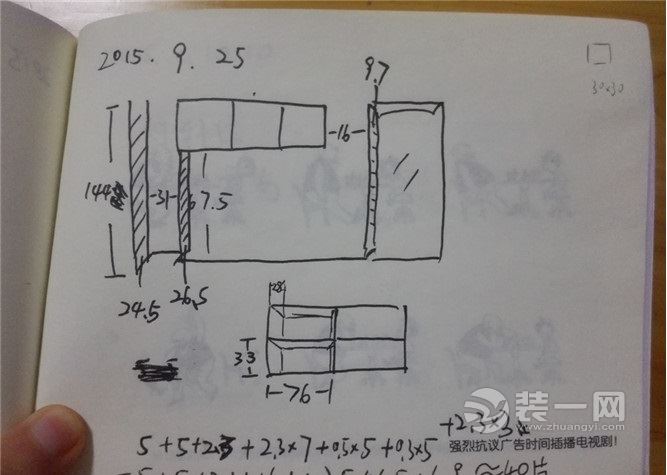 2015. 9. 25
9.7
30×30
-16-
144
-31-
67.5
24.5
26.5
28
33
1-76-1
+2.3×3
5+5+2.3+2.3×7+0.5×5+0.3×5
强烈抗议广告时间插播电视剧!
≈40片
装一网
zhuangyi.com